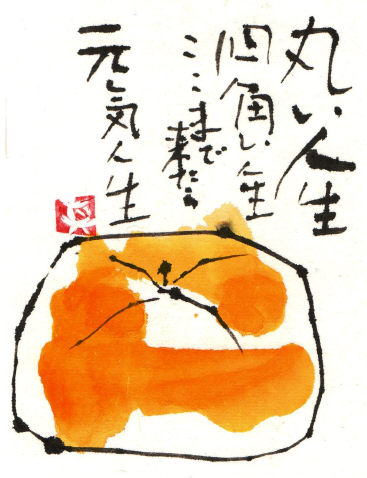 丸い人生
四角い人生
ここまで
来たら
元気人生